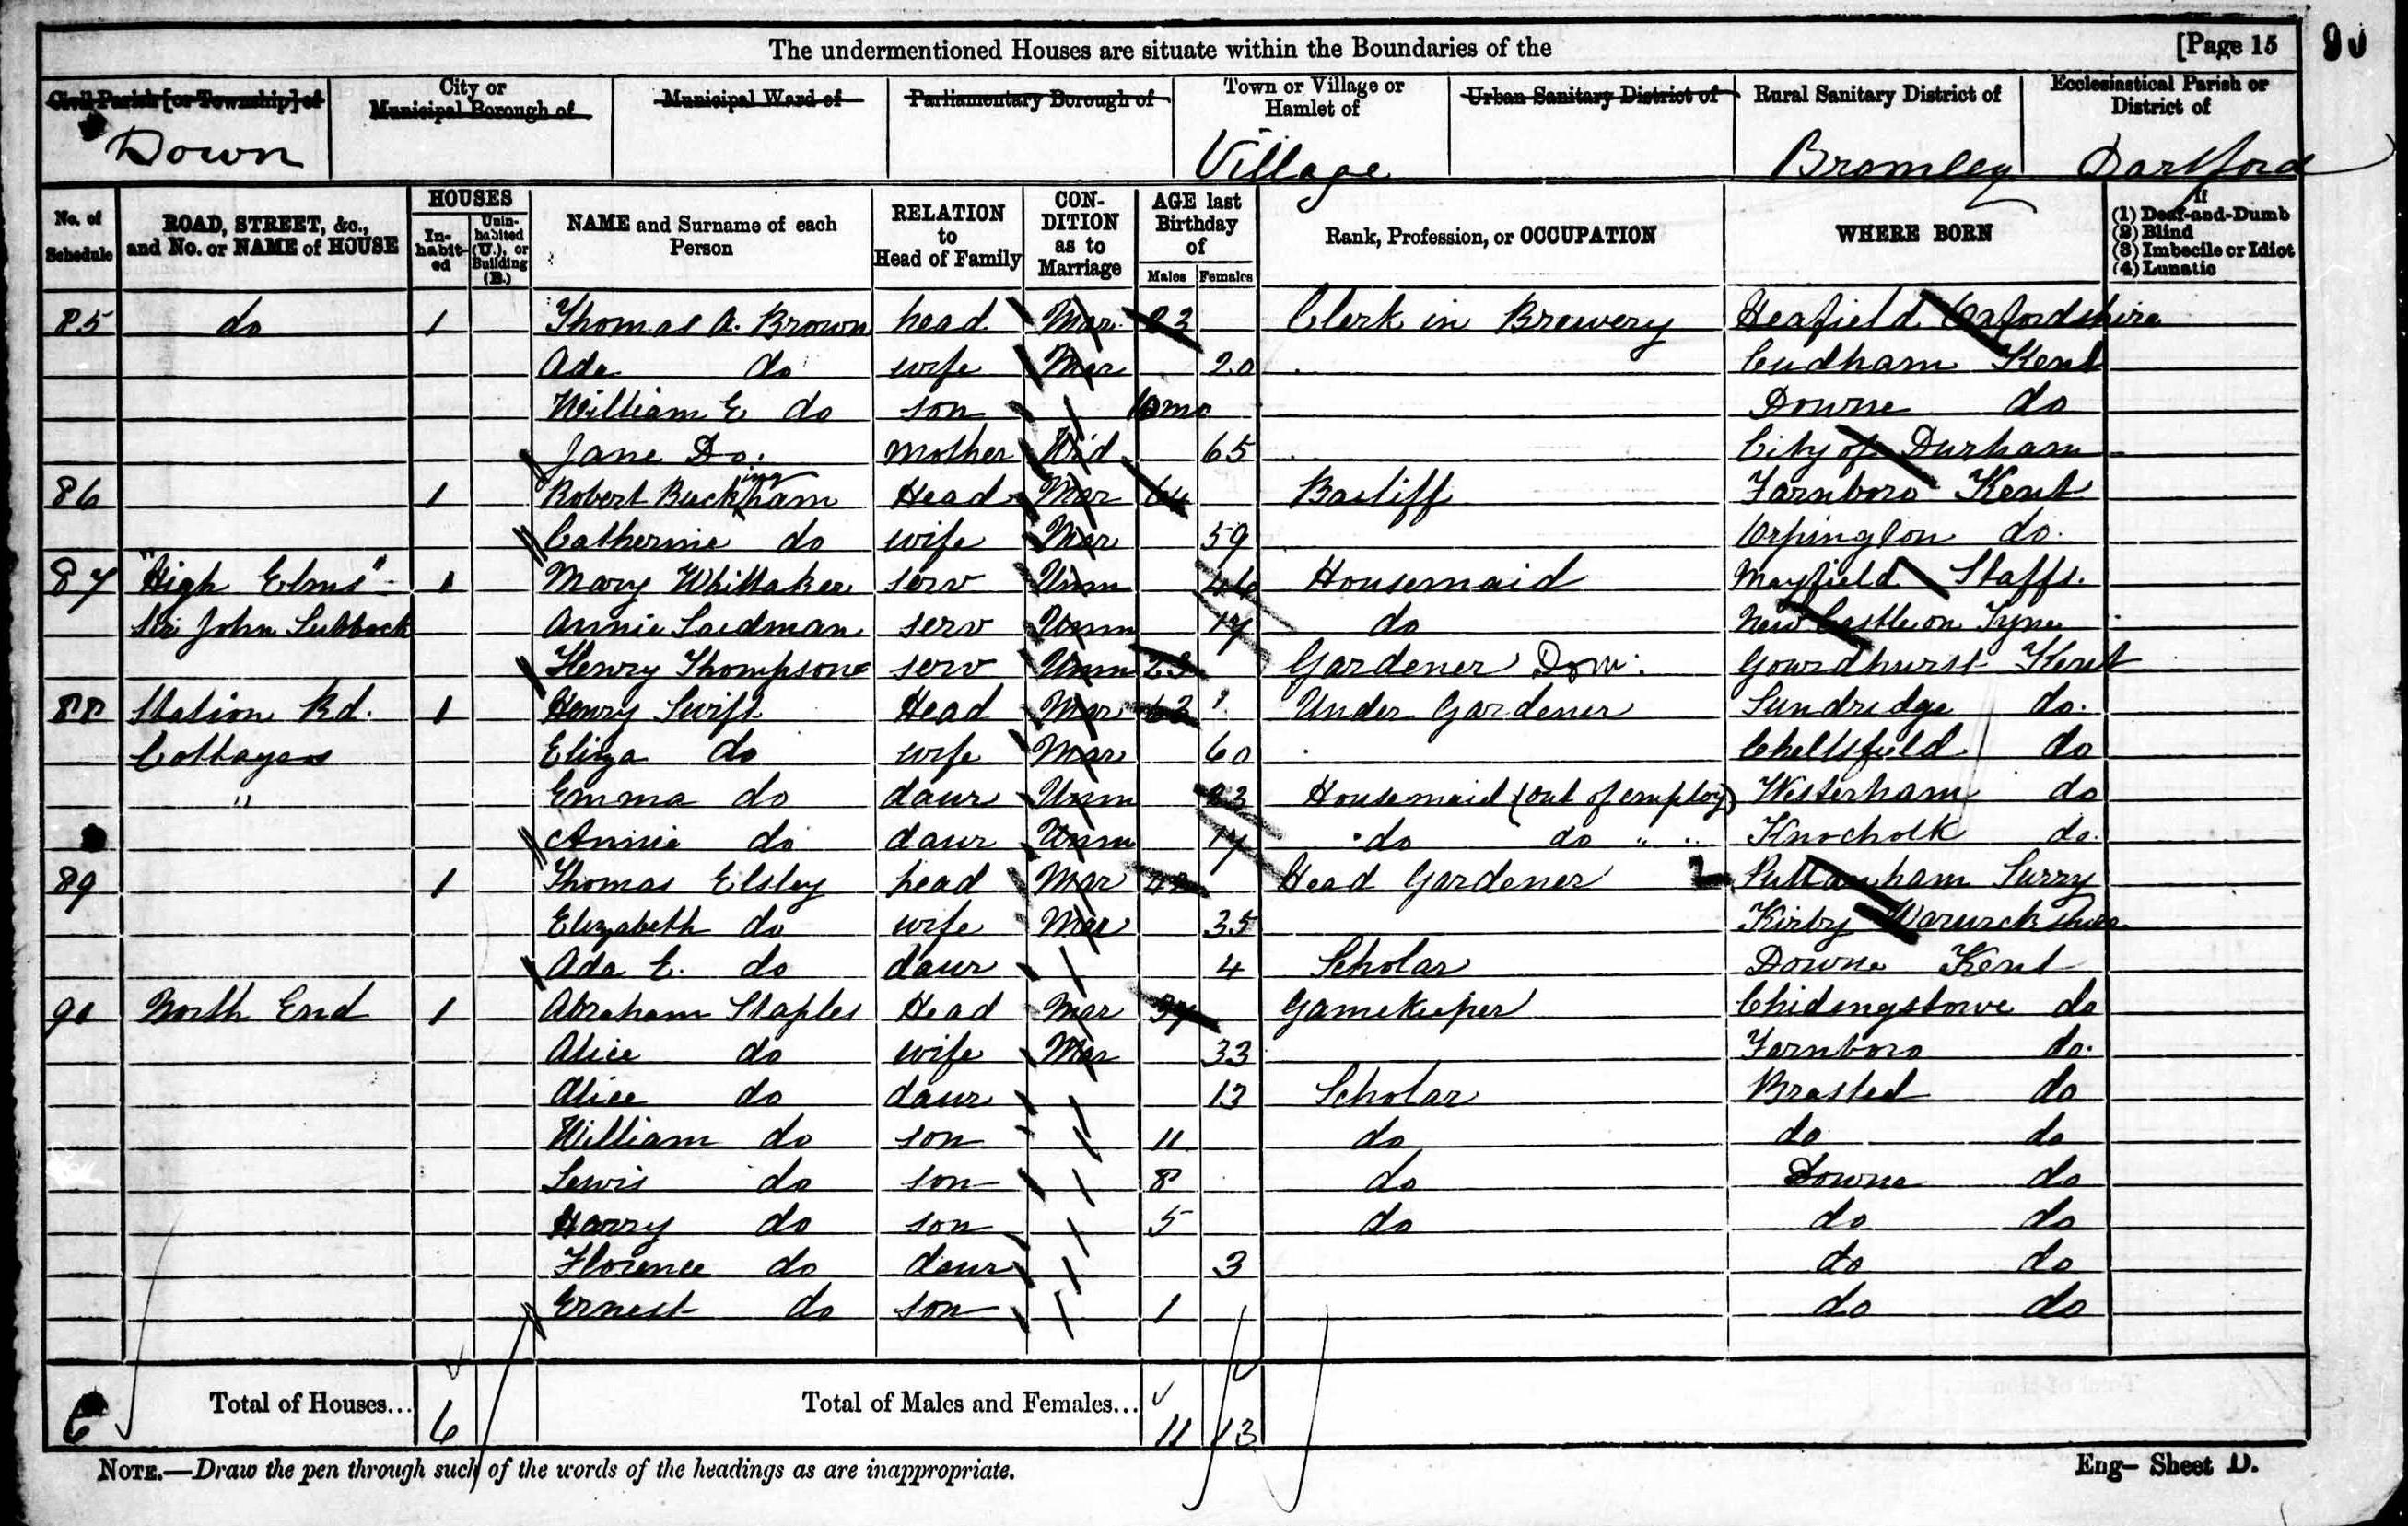 The undermentioned Houses are situate within the Boundaries of the [Page 15 90
Civil Parish [or Township] of City or Municipal Borough of Municipal Ward of Parliamentary Borough of Town or Village or Hamlet of Urban Sanitary District of Rural Sanitary District of Ecclesiastical Parish or District of
Down Village Bromley Dartford
No. of Schedule ROAD, STREET, &c., and No. or NAME of HOUSE HOUSES In-habit-ed Unin-habited (U.), or Building (B.) NAME and Surname of each Person RELATION to Head of Family CON-DITION as to Marriage AGE last Birthday of Males Females Rank, Profession, or OCCUPATION WHERE BORN If (1) Deaf-and-Dumb (2) Blind (3) Imbecile or Idiot (4) Lunatic
85 do 1 Thomas A. Brown head Mar 23 Clerk in Brewery Oxfordshire
Ada do wife Mar 20 Cudham Kent
William E do son mo Downe do
Jane Do. Mother Wid 65 City of Durham
86 1 Robert Buckingham Head Mar 64 Bailiff Farnboro Kent
Catherine do wife Mar 59 Orpington do.
87 "High Elms" 1 Mary Whittaker serv Unm Housemaid Mayfield Staffs.
Sir John Lubbock Annie serv Unm 17 do New Castle on Tyne
Henry Thompson serv Unm 23 Gardener Dom. Gourdhurst Kent
88 Station Rd. 1 Henry Swift Head Mar 62 Under Gardener Sundridge do.
Cottages Eliza do wife Mar 60 Chellsfield do
" Emma do daur Unm 23 Housemaid (out of employ) Westerham do
Annie do daur Unm 17 do do " " Knockolk do.
89 1 Thomas Elsley head Mar Head Gardener Puttenham Surry
Elizabeth do wife Mar 35 Kirby Warwickshire
Ada E. do daur 4 Scholar Downe Kent
90 North End 1 Abraham Staples Head Mar 37 Gamekeeper Chidingstowe do
Alice do wife Mar 33 Farnboro do.
Alice do daur 13 Scholar Brasted do
William do son 11 do do do
Lewis do son 8 do Downe do
Harry do son 5 do do do
Florence do daur 3 do do
Ernest do son 1 do do
6 Total of Houses... 6 Total of Males and Females... 11 13
NOTE.—Draw the pen through such of the words of the headings as are inappropriate. Eng– Sheet D.